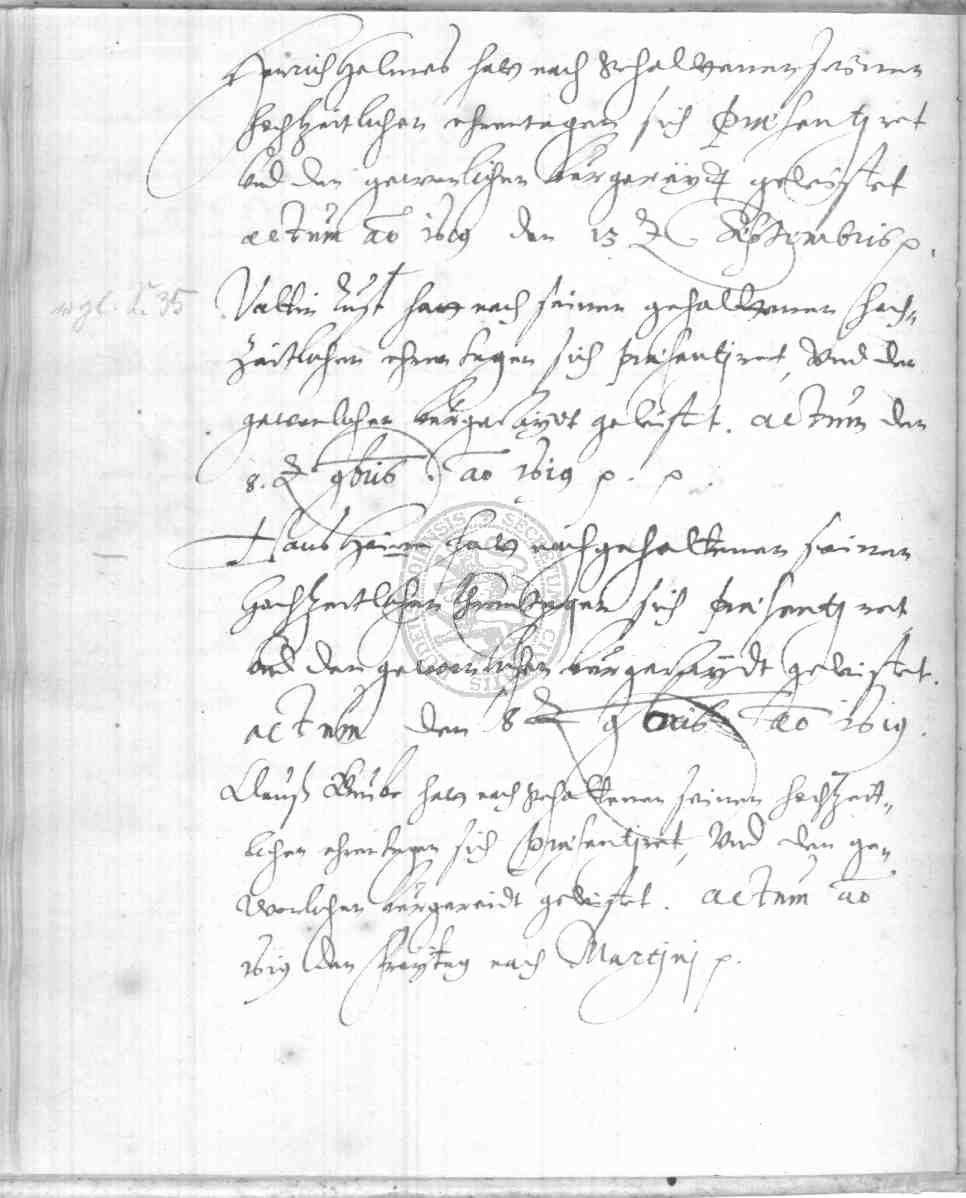 Henrich Helmes hatt nach gehaltenen seinen
hochzeitlichen ehrentagen sich præsentjret
vnd den gewonlichen bürgereydt geleistet
actum ao 1619 den 13 Septembris p.
vgl. S. 35
Valtin Lust hatt nach seinen gehaltenen hoch„
zeitlichen ehrentagen sich præsentjret, vnd den
gewonlichen bürgerlaydt geleistet. actum den
8. 9bris. ao 1619 p. p.
Hans hatt nach gehaltenen seinen
hochzeitlichen Ehrentagen sich præsentjret
vnd den gewonlichen bürgerlaydt geleistet.
actum den 8 9bris ao 1619.
Clauß hatt nach gehaltenen seinen hochzeit„
lichen ehrentagen sich præsentjret, vnd den ge„
wonlichen bürgereidt geleistet. actum ao
1619 den freÿtag nach Martjnj p.